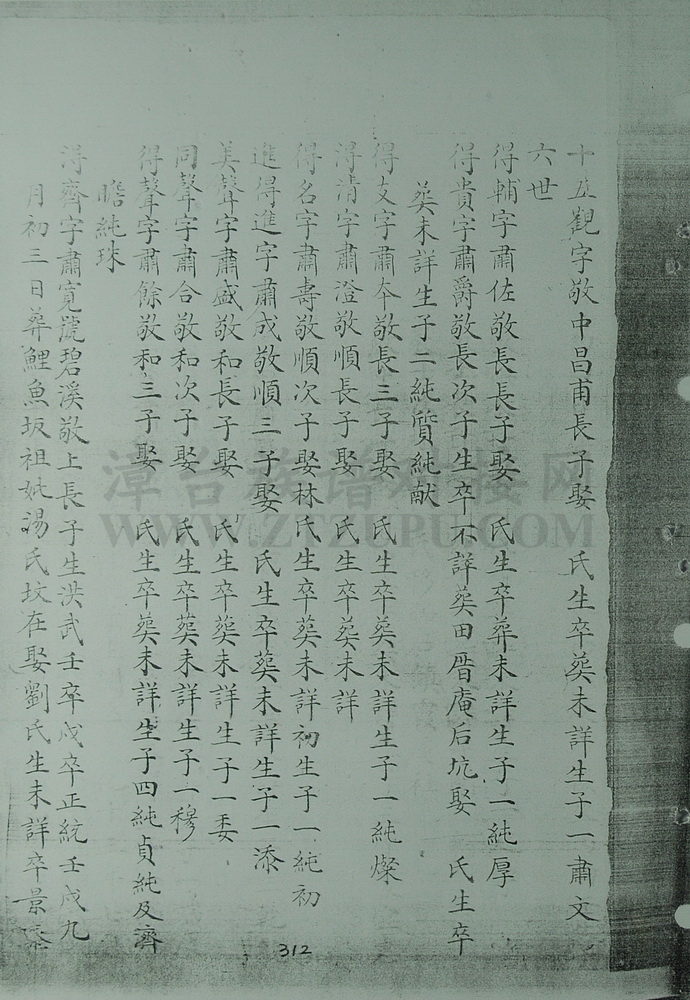 十五觀字敬中昌甫長子娶 氏生卒葬未詳生子一肅文
六世
得輔字肅佐敬長長子娶 氏生卒葬未詳生子一純厚
得貴字肅爵敬長次子生卒不詳葬田厝庵后坑娶 氏生卒
葬未詳生子二純質純献
得友字肅本敬長三子娶 氏生卒葬未詳生子一純燦
得清字肅澄敬順長子娶 氏生卒葬未詳
得名字肅壽敬順次子娶林氏生卒葬未詳初生子一純初
進得進字肅成敬順三子娶 氏生卒葬未詳生子一添
美聲字肅盛敬和長子娶 氏生卒葬未詳生子一委
同聲字肅合敬和次子娶 氏生卒葬未詳生子一穆
得聲字肅餘敬和三子娶 氏生卒葬未詳生子四純貞純及濟
瞻純珠
得齊字肅寬號碧溪敬上長子生洪武壬卒戍卒正統壬戍九
月初三日葬鯉魚坂祖妣湯氏坟在娶劉氏生未詳卒景泰
312
漳台族谱对接网
WWW.ZTZUPU.COM